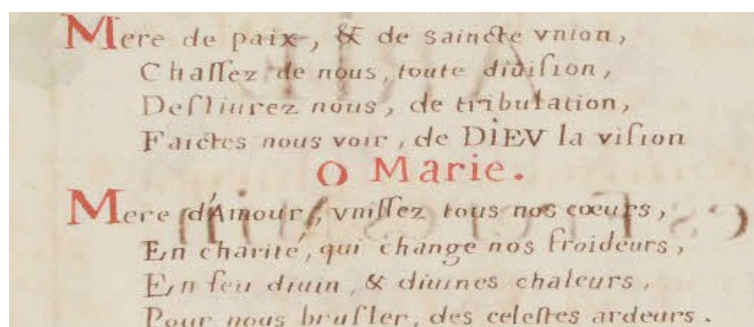 Mere de paix, & de saincte vnion,
Chaſſez de nous, toute diuiſion,
Deſliurez nous, de tribulation,
Faictes nous voir, de DIEV la viſion
O Marie.
Mere d'Amour, vniſſez tous nos cœurs,
En charité, qui change nos froideurs,
En feu diuin, & diuines chaleurs,
Pour nous bruſler, des celeſtes ardeurs.